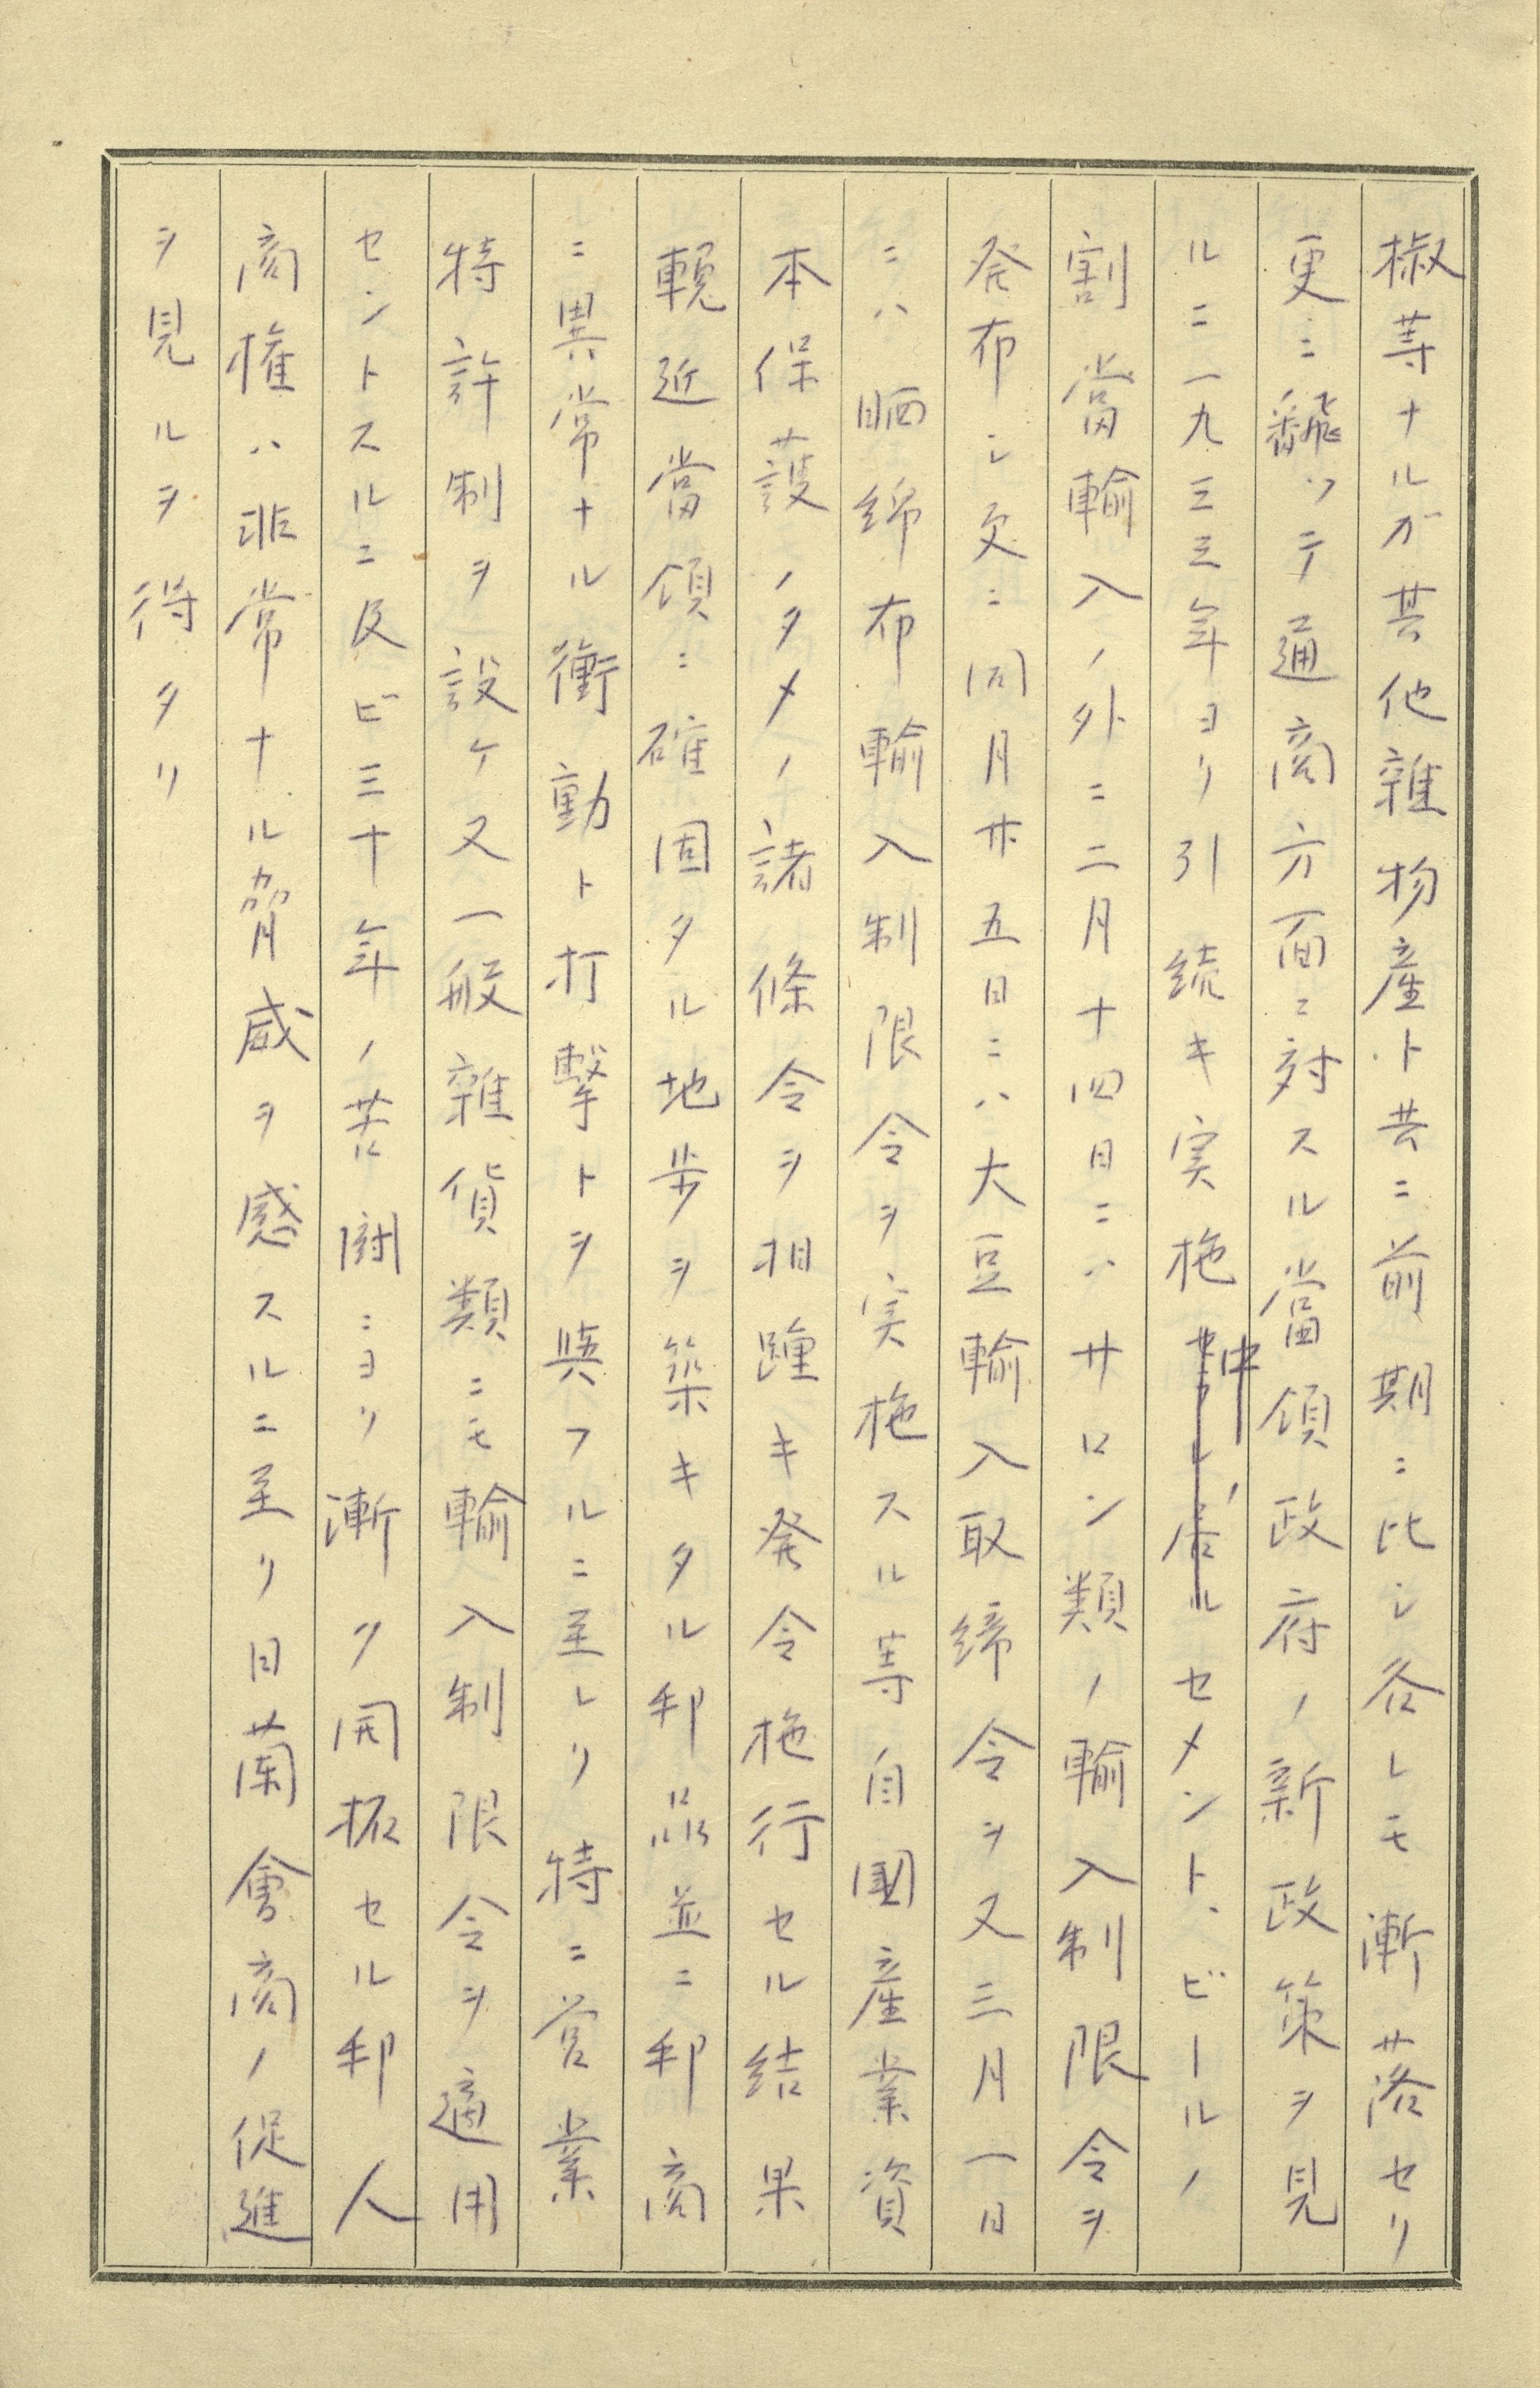 椒等ナルガ其他雜物産ト共ニ前期ニ比シ各レモ漸落セリ
更ニ飜ツテ通商方面ニ対スル當領政府ノ新政策ヲ見
ルニ一九三三年ヨリ引続キ実施中ノセメント、ビールノ
割當輸入ノ外ニ二月十四日ニハサロン類ノ輸入制限令ヲ
発布シ更ニ同月廿五日ニハ大豆輸入取締令ヲ又三月一日
ニハ晒綿布輸入制限令ヲ実施スル等自國産業資
本保護ノタメノ諸條令ヲ相踵キ発令施行セル結果
輓近當領ニ確固タル地歩ヲ築キタル邦品並ニ邦商
ニ異常ナル衝動ト打撃トヲ與フルニ至レリ特ニ営業
特許制ヲ設ケ又一般雜貨類ニモ輸入制限令ヲ適用
セントスルニ及ビ三十年ノ苦闘ニヨリ漸ク開拓セル邦人
商権ハ非常ナル脅威ヲ感スルニ至リ日蘭會商ノ促進
ヲ見ルヲ得タリ